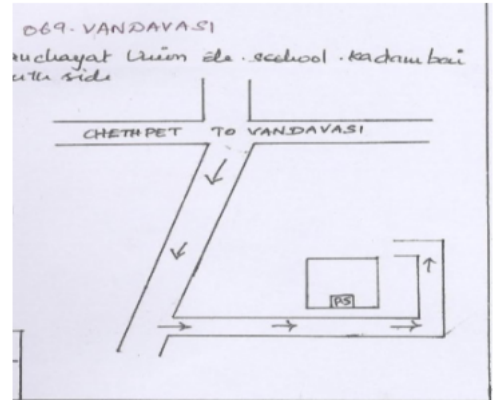 069-VANDAVASI
uuchayat Union ele. scehool. Kadambai
uth side
CHETHPET TO VANDAVASI
PS